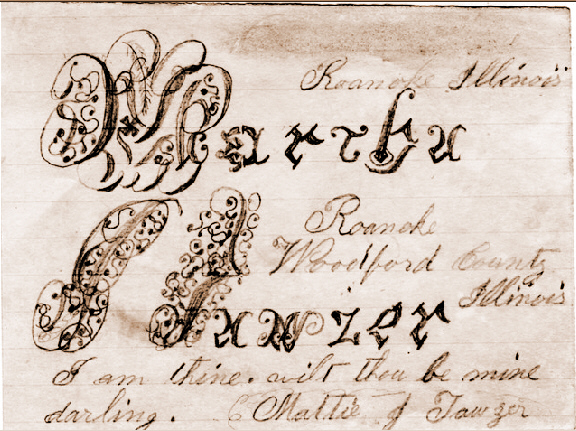 Roanoke Illinois
Martha
Roanoke
Woodford County
Illinois
J Tawzer
I am thine. wilt thou be mine
darling. Mattie J Tawzer